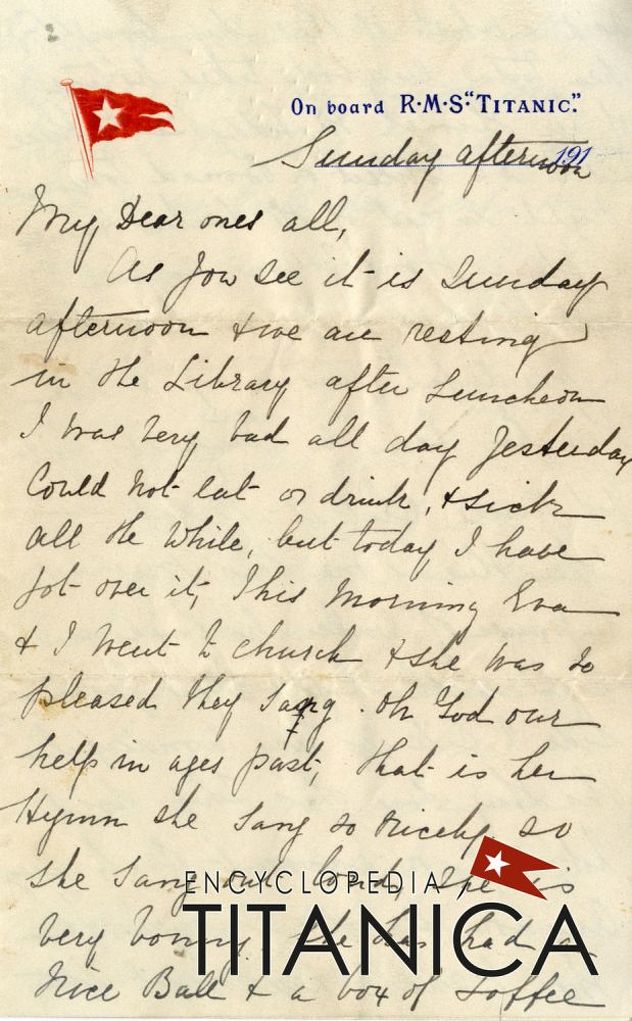 On board R·M·S·"TITANIC".
191
Sunday afternoon
My Dear ones all,
As you see it is Sunday
afternoon & we are resting
in the Library after Luncheon
I was very bad all day yesterday
Could not eat or drink, & sick
all the while, but today I have
got over it, This morning Eva
& I went to church & she was so
pleased they sang . Oh God our
help in ages past, that is her
Hymn she sang so nicely, so
she sang out loud, she is
very bonny. she has had a
nice Ball & a box of toffee
ENCYCLOPEDIA
TITANICA